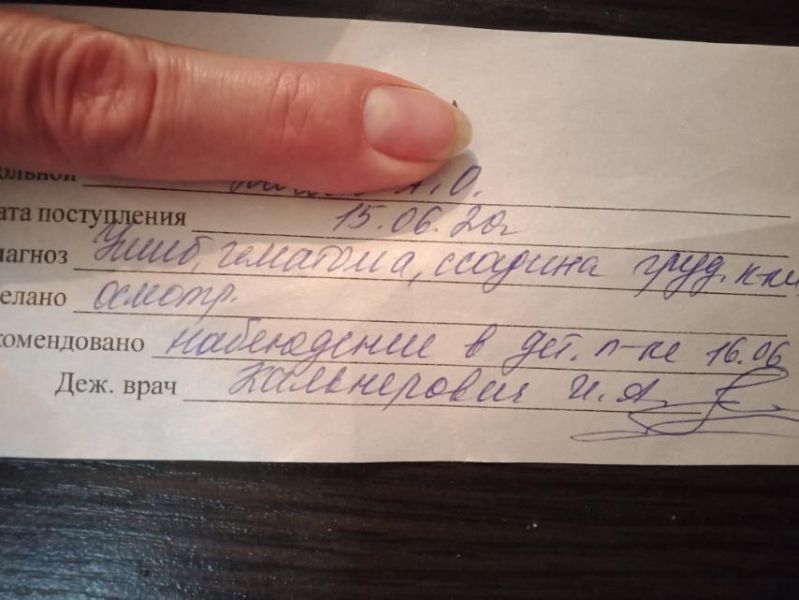 ольной А.О.
ата поступления 15.06.20г
иагноз Ушиб, гематома, ссадина груд. к-ки
елано осмотр.
комендовано наблюдение в дет. п-ке 16.06
Деж. врач Кальнерович И.А.